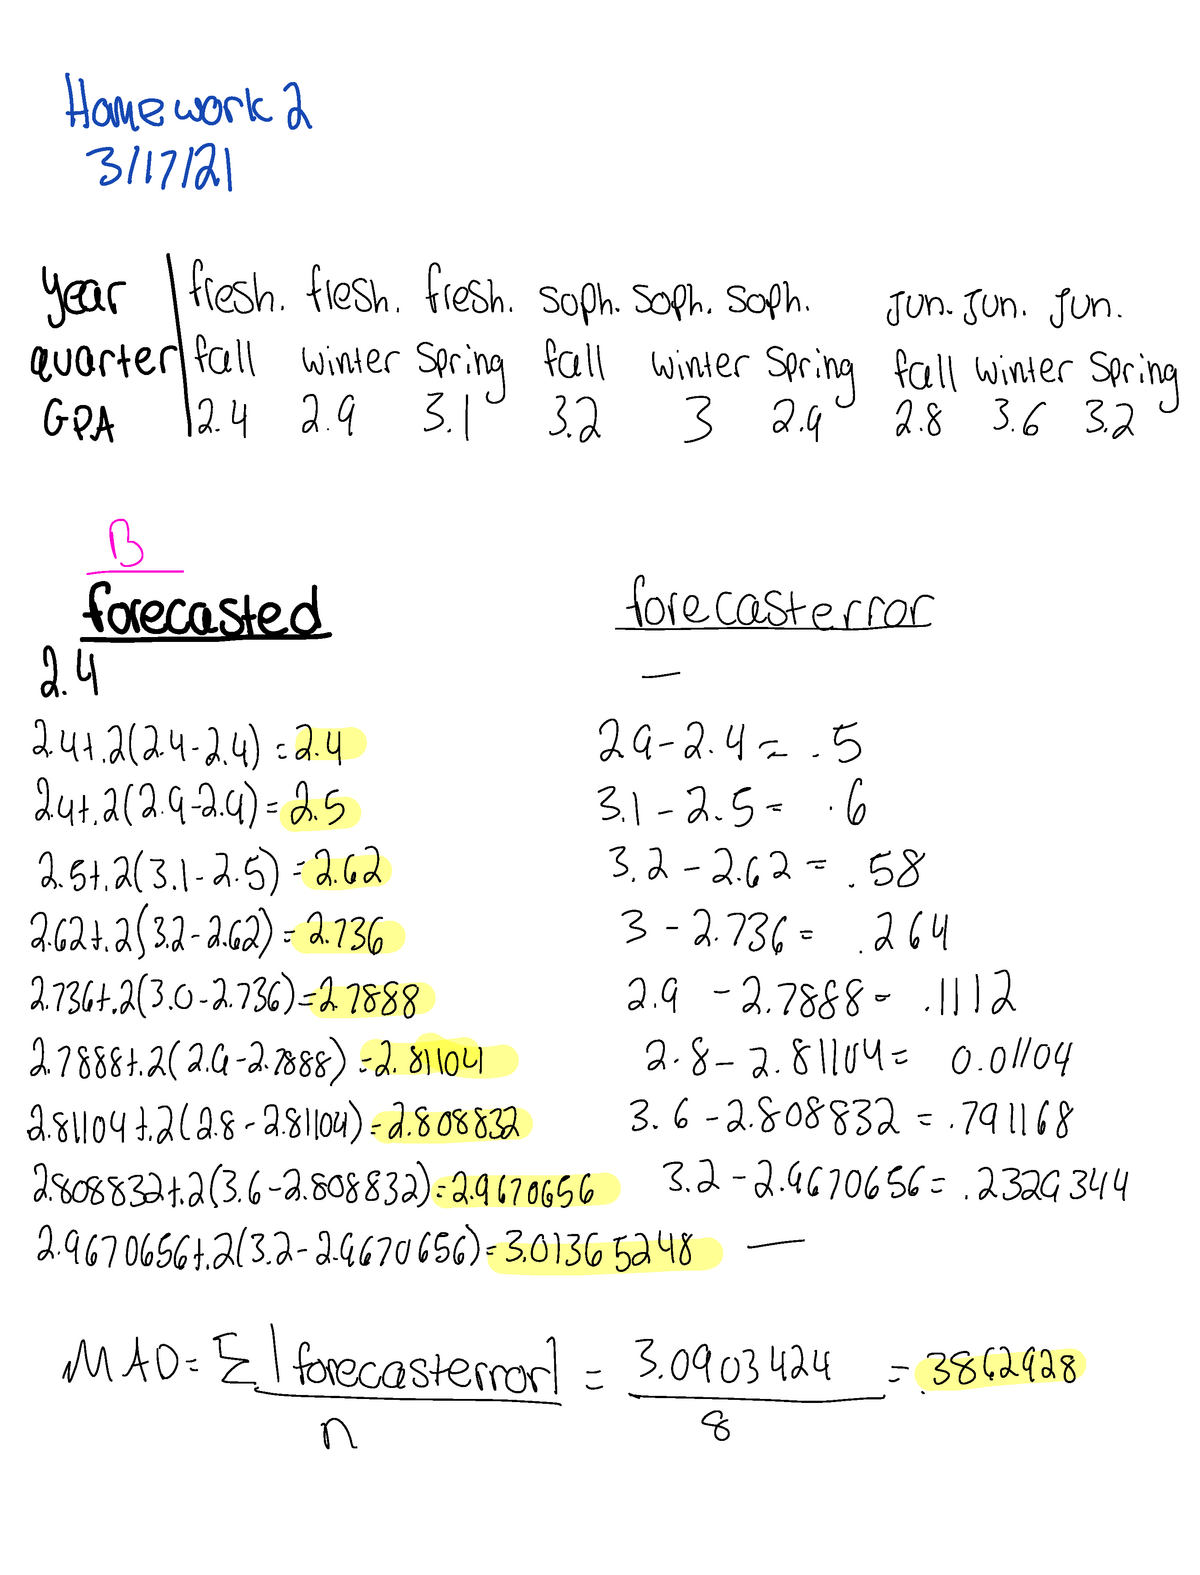 Homework 2
3/17/21
year fresh. fresh. fresh. soph. soph. soph. Jun. Jun. Jun.
quarter fall winter Spring fall winter Spring fall winter Spring
GPA 2.4 2.9 3.1 3.2 3 2.9 2.8 3.6 3.2
B
forecasted forecasterror
2.4 —
2.4+.2(2.4-2.4) = 2.4 2.9-2.4 = .5
2.4+.2(2.9-2.4) = 2.5 3.1-2.5 = .6
2.5+.2(3.1-2.5) = 2.62 3.2-2.62 = .58
2.62+.2(3.2-2.62) = 2.736 3-2.736 = .264
2.736+.2(3.0-2.736) = 2.7888 2.9-2.7888 = .1112
2.7888+.2(2.9-2.7888) = 2.81104 2.8-2.81104 = 0.01104
2.81104+.2(2.8-2.81104) = 2.808832 3.6-2.808832 = .791168
2.808832+.2(3.6-2.808832) = 2.9670656 3.2-2.9670656 = .2329344
2.9670656+.2(3.2-2.9670656) = 3.01365248 —
MAD = Σ|forecasterror| = 3.0903424 = .3862928
n 8